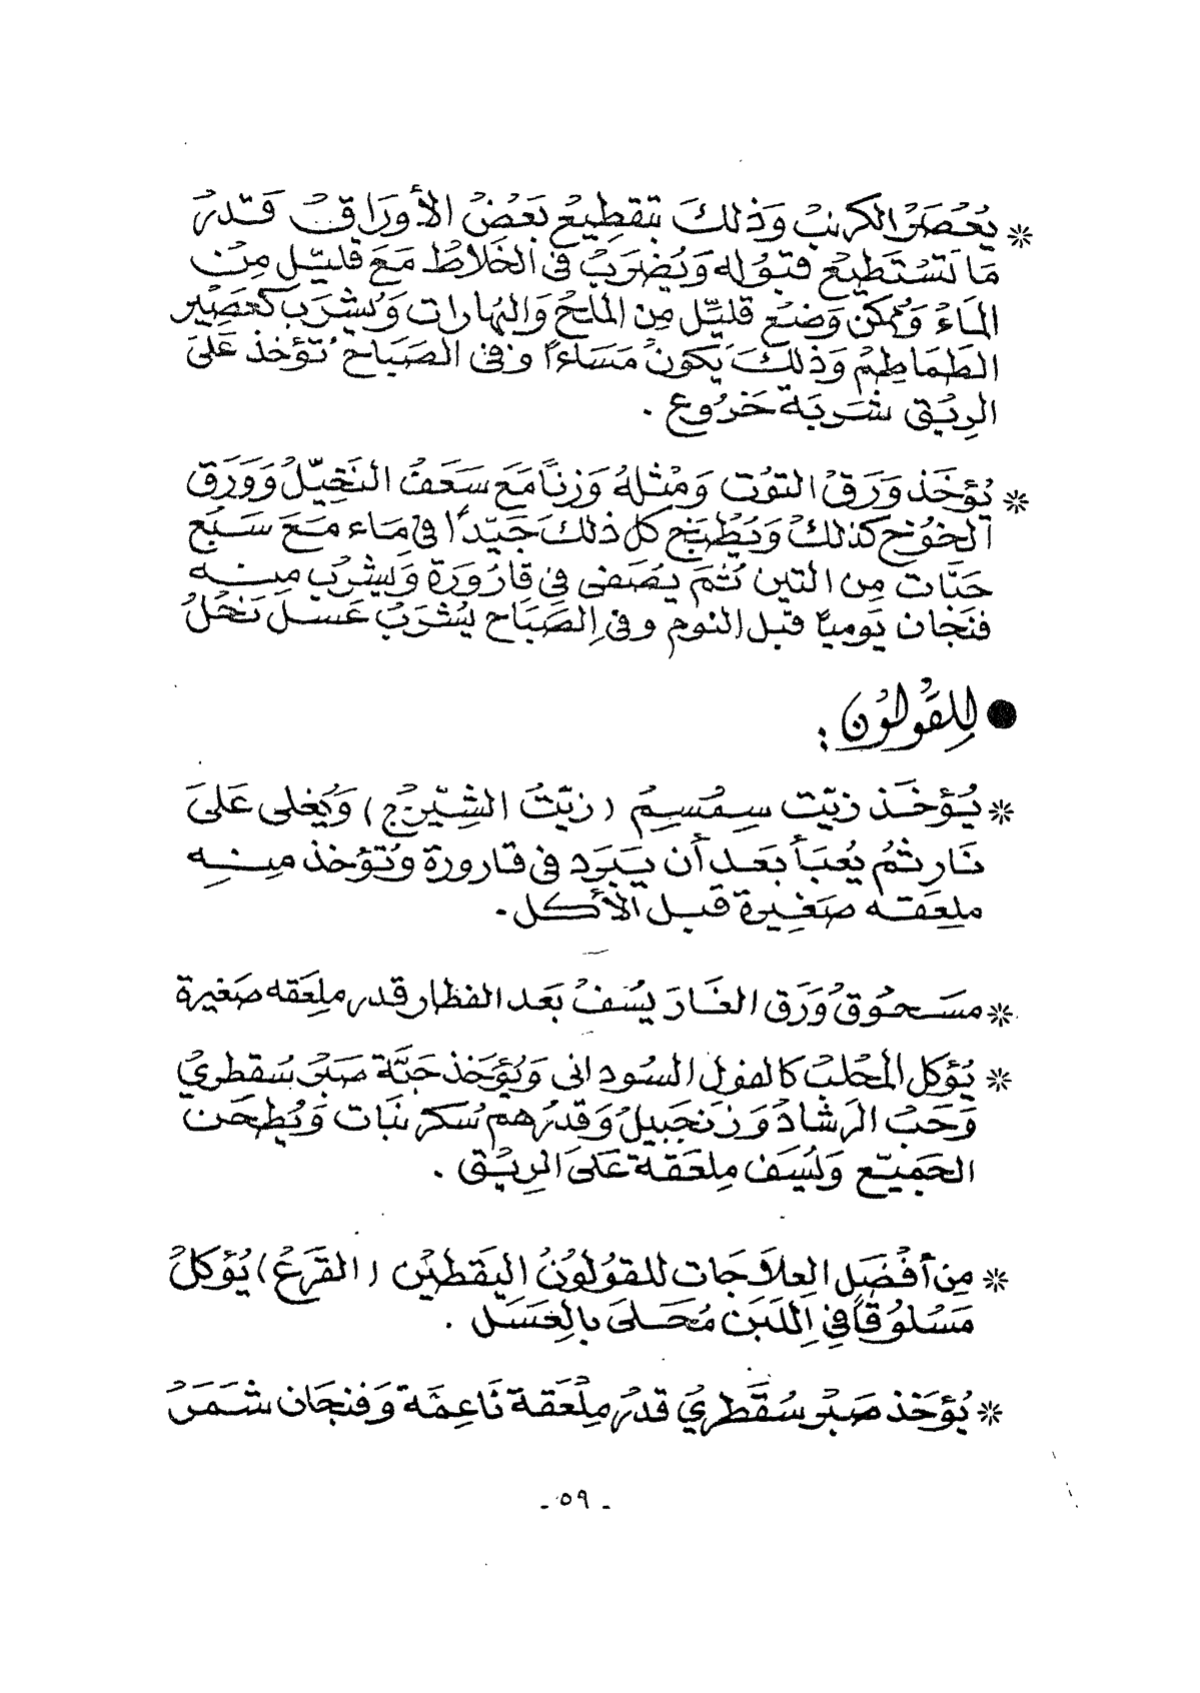 * يُعْصَرُ الكرنبُ وَذلكَ بتقطِيعُ بَعْضُ الأورَاقْ قَدْرُ
مَا تَسْتَطِيعُ قبُوله وَيُضْرَبُ فى الخَلاطْ مَعَ قليْل مِنْ
المَاءْ وَيُمكنْ وَضْعُ قليْل مِنْ الملحْ وَالبُهارات وَيُشْرَبْ كَعَصِيْر
الطَمَاطِمْ وَذلكَ يَكونْ مَسَاءاً وفى الصَبَاحْ تُؤخذ عَلىَ
الرِيْق شَربَة خَرْوع .
* يُؤخَذ وَرَقْ التوُت وَمْثلهُ وَزناً مَعَ سَعَفْ النَخِيْلُ وَوَرَق
الخوُخ كذلكْ وَيُطْبَخ كل ذلكَ جَيّدًا فى مَاء مَعَ سَبْع
حَبَّات مِن التين ثُمَ يُصَفى فى قارُورَة وَيشْرَب مِنه
فنْجان يَومياً قبل النوم وفى الصَبَاح يُشْرَبُ عَسلَ نَحْلُ
● لِلقُولُوْن :
* يُؤخَذ زيْت سِمْسِمُ ( زيْتُ الشِيْرج ) وَيُغلى عَلىَ
نَار ثمُ يُعبَأ بَعد أن يَبرَد فى قارورة وَتُؤخذ مِنهِ
ملعَقه صَغيْرة قبل الأكل.
* مسَحوُق وَرَق الغَارَ يسَُفُ بَعد الفطار قدر ملِعَقه صَغيرة
* يُؤكل المَحْلبْ كالفول السُودانى وَيُؤخَذ حَبَّة صَبْر سُقطرِيُ
وَحَبْ الرَشادْ وَزنجَبيلُ وَقدرُهم سُكر نبَات وَيُطحَن
الجَميْع وَيُسَف مِلعَقة عَلىَ الرِيْق .
* مِن أفْضَل العِلاجَات للقوُلوُنُ اليَقطيْن ( القَرَعْ ) يُؤكلُ
مَسْلوُقاً فى اللَبَن مُحَلىَ بالِعَسَل .
* يُؤخَذ صَبْر سُقَطرِيُ قدرُ مِلْعَقة نَاعِمَة وَفنجَان شَمَرُ
- ٥٩ -